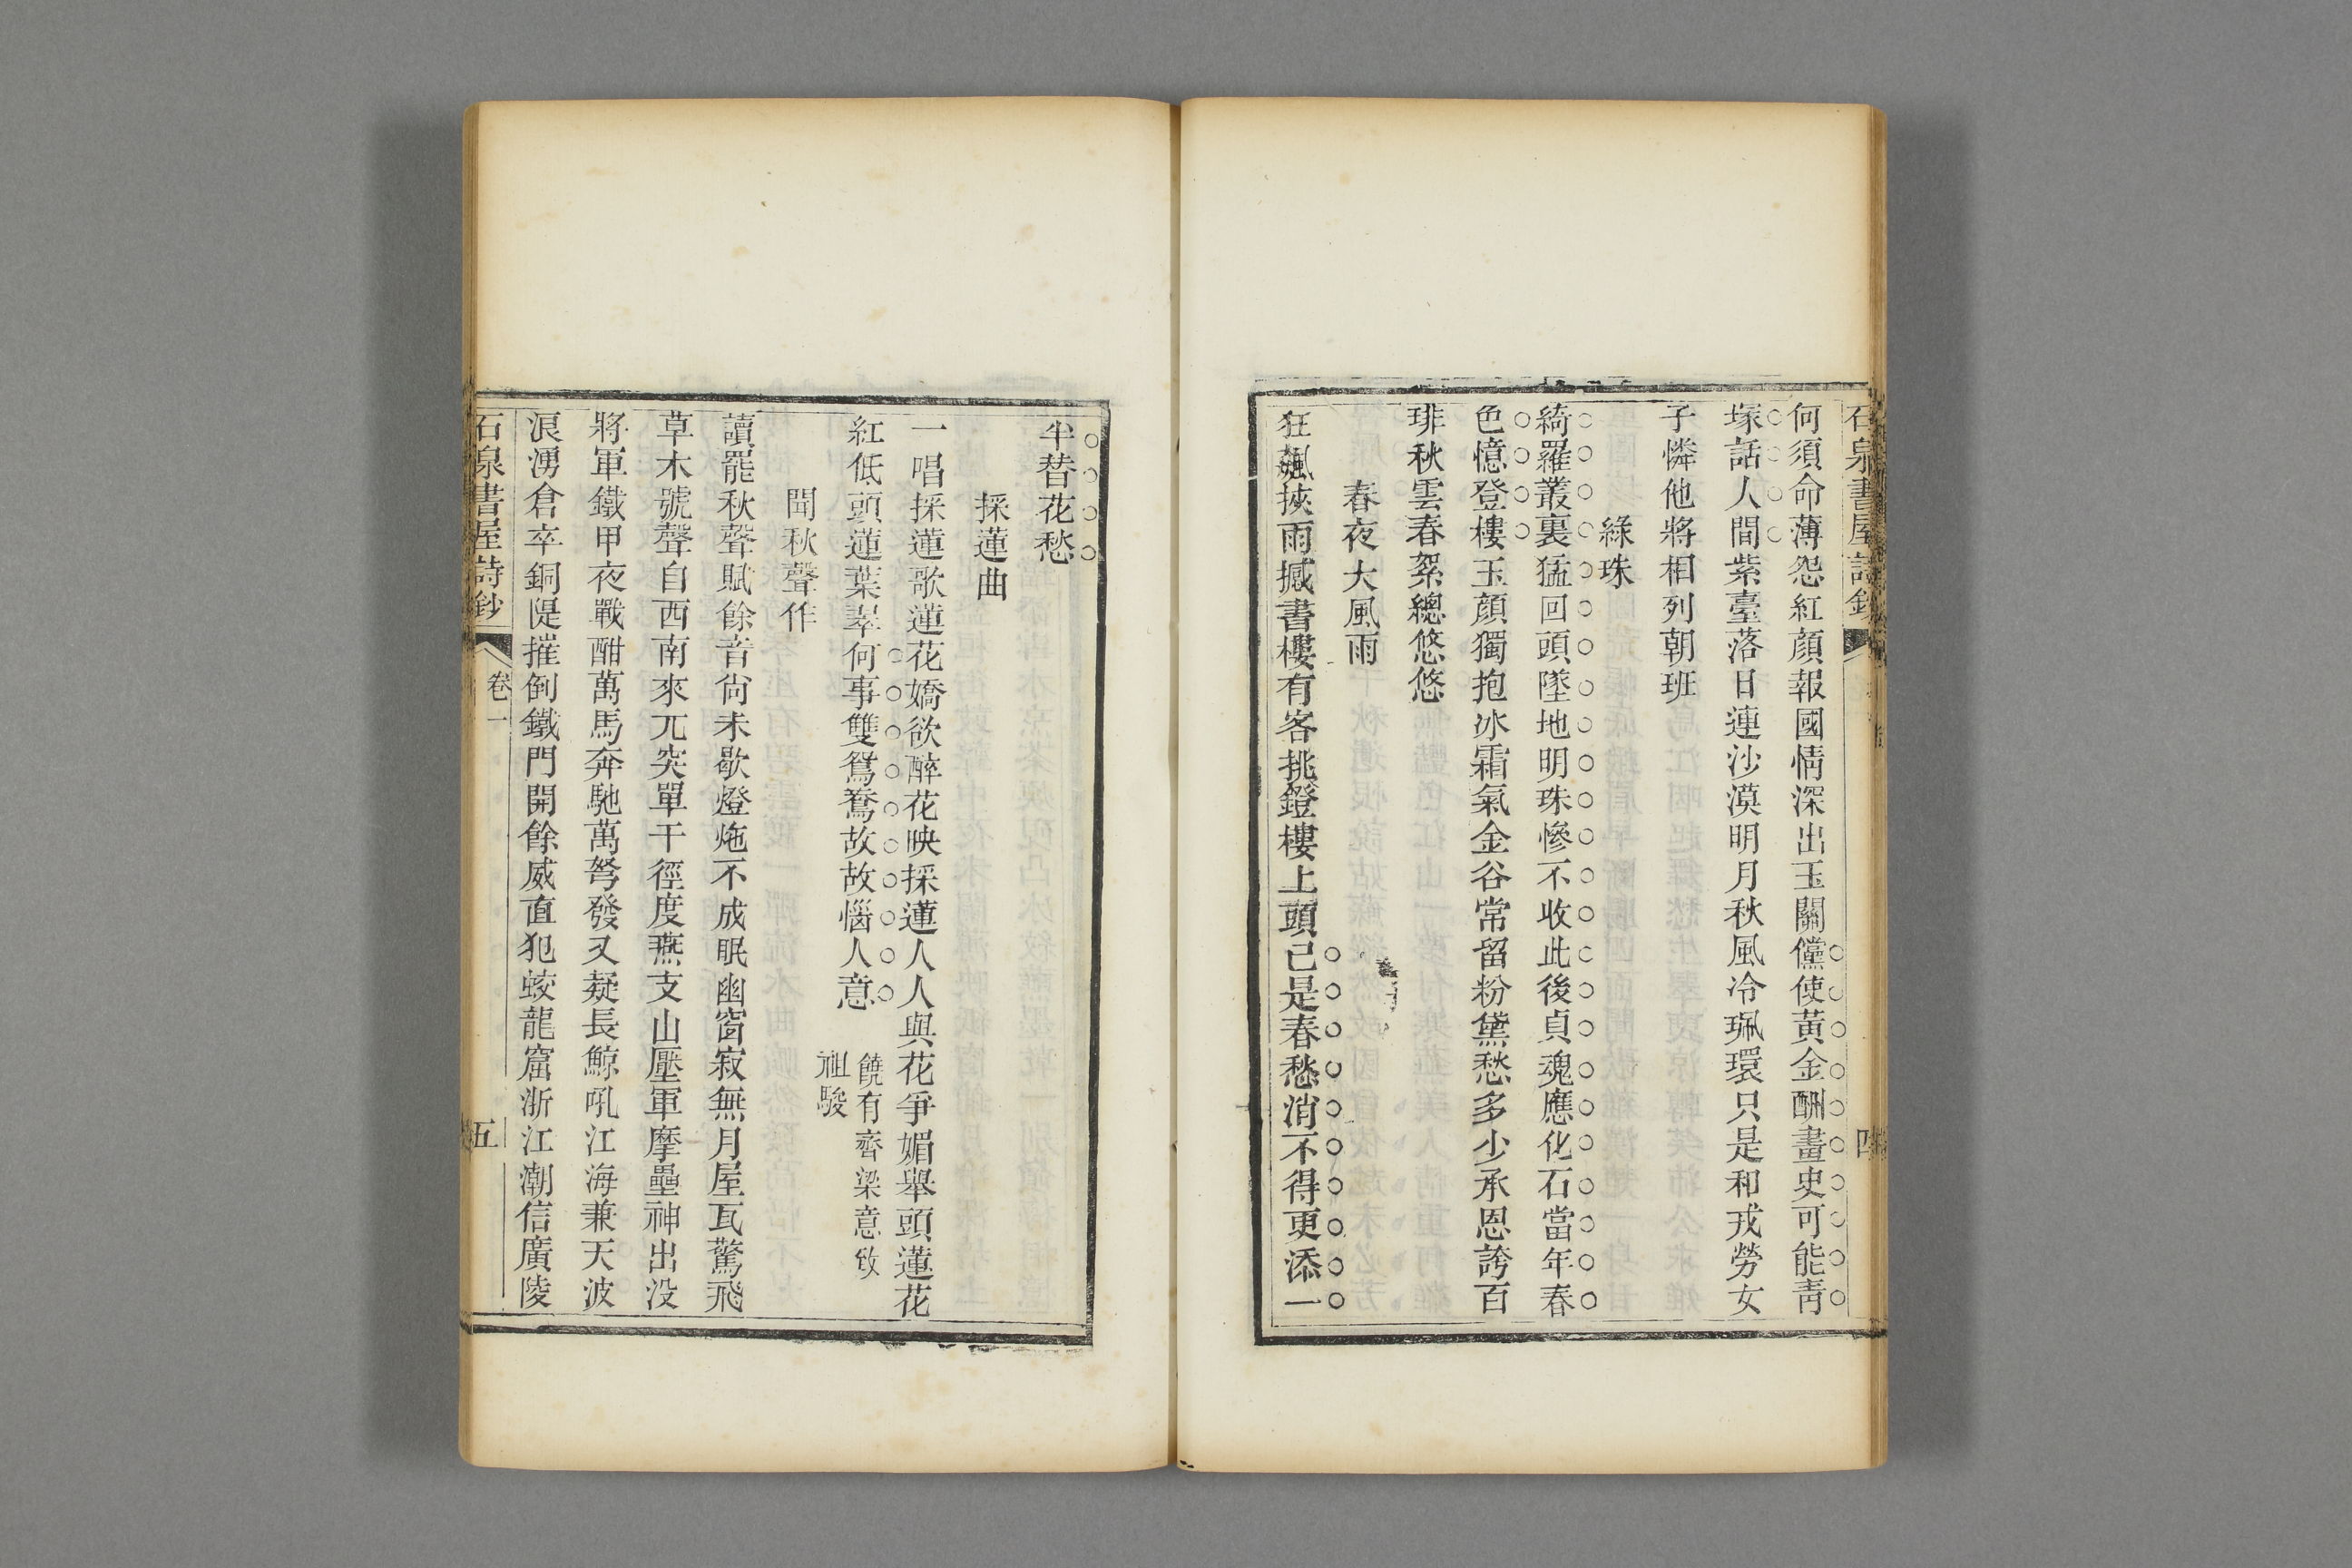 石泉書屋詩鈔
四
何須命薄怨紅顔報國情深出玉關儻使黃金酬畫史可能靑
塚話人間紫臺落日連沙漠明月秋風冷珮環只是和戎勞女
子憐他將相列朝班
綠珠
綺羅叢裏猛回頭墜地明珠慘不收此後貞魂應化石當年春
色憶登樓玉顔獨抱冰霜氣金谷常留粉黛愁多少承恩誇百
琲秋雲春絮總悠悠
春夜大風雨
狂飆挾雨撼書樓有客挑鐙樓上頭已是春愁消不得更添一
半替花愁
採蓮曲
一唱採蓮歌蓮花嬌欲醉花映採蓮人人與花爭媚舉頭蓮花
紅低頭蓮葉翠何事雙鴛鴦故故惱人意
饒有齊梁意致
祖駿
聞秋聲作
讀罷秋聲賦餘音尙未歇燈炧不成眠幽窗寂無月屋瓦驚飛
草木號聲自西南來兀突單干徑度燕支山壓軍摩壘神出没
將軍鐵甲夜戰酣萬馬奔馳萬弩發又疑長鯨吼江海兼天波
浪湧倉卒銅隄摧倒鐵門開餘威直犯蛟龍窟浙江潮信廣陵
石泉書屋詩鈔
卷一
五